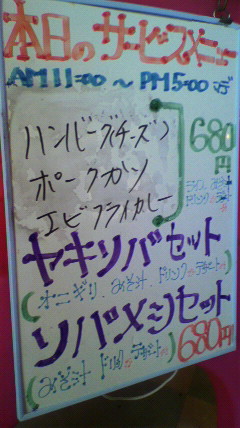 本日のサービスメニュー
AM11:00 〜 PM5:00 迄
ハンバーグチーズ
ポークカツ
エビフライカレー
680円
ライス みそ汁
ドリンク
ヤキソバセット
(オニギリ、みそ汁、ドリンク or デザート)
ソバメシセット
(みそ汁 ドリンク or デザート)
680円